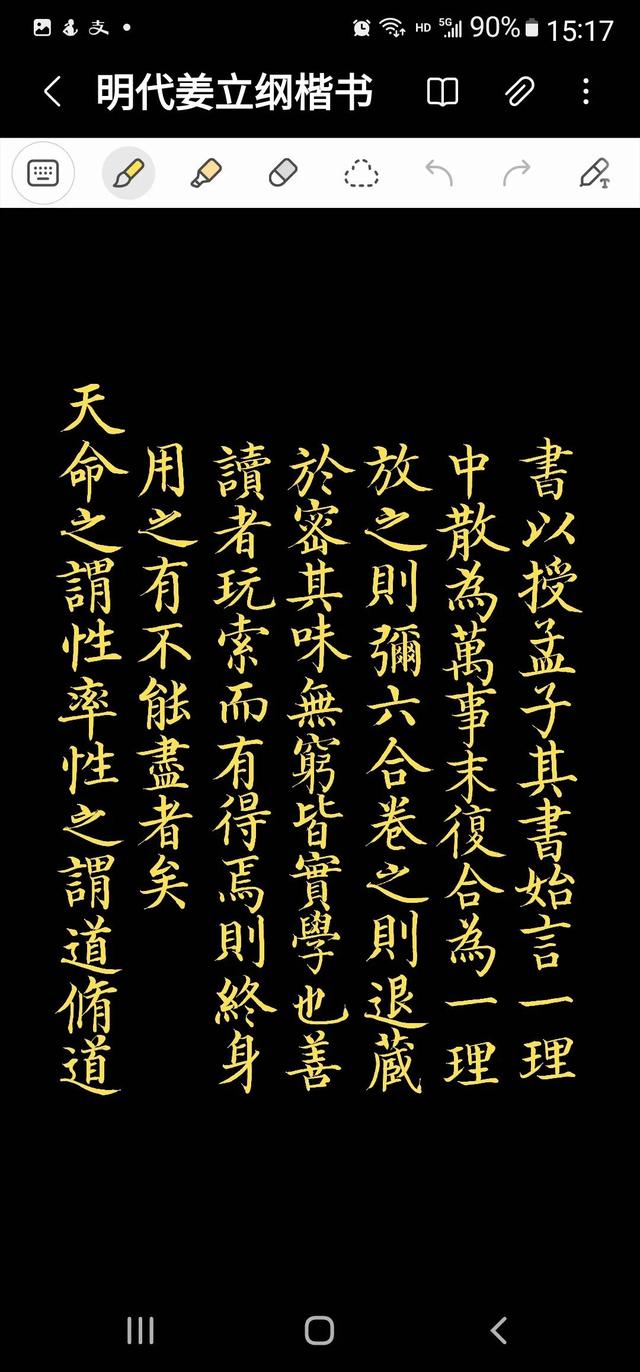 HD 5G 90% 15:17
明代姜立纲楷书
書以授孟子其書始言一理
中散為萬事末復合為一理
放之則彌六合卷之則退藏
於宻其味無窮皆實學也善
讀者玩索而有得焉則終身
用之有不能盡者矣
天命之謂性率性之謂道脩道